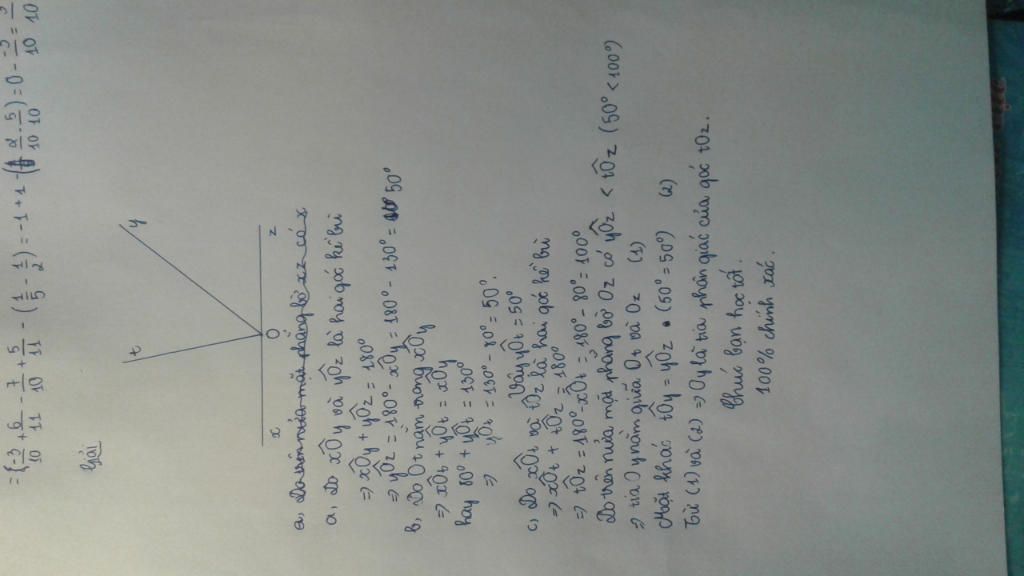 = (\frac{-3}{10} + \frac{6}{11} - \frac{7}{10} + \frac{5}{11} - (\frac{1}{5} - \frac{1}{2}) = -1 + 1 - (\frac{2}{10} - \frac{5}{10}) = 0 - \frac{-3}{10} = \frac{3}{10}
Giải
t
y
x
O
z
a, Do trên nửa mặt phẳng bờ xz có x
a, Do xÔy và yÔz là hai góc kề bù
⇒ xÔy + yÔz = 180°
⇒ yÔz = 180° - xÔy = 180° - 130° = 50°
b, Do Ot nằm trong xÔy
⇒ xÔt + yÔt = xÔy
hay 80° + yÔt = 130°
⇒ yÔt = 130° - 80° = 50°.
Vậy yÔt = 50°
c, Do xÔt và tÔz là hai góc kề bù
⇒ xÔt + tÔz = 180°
⇒ tÔz = 180° - xÔt = 180° - 80° = 100°
Do trên nửa mặt phẳng bờ Oz có yÔz < tÔz (50° < 100°)
⇒ tia Oy nằm giữa Ot và Oz (1)
Mặt khác tÔy = yÔz. (50° = 50°) (2)
Từ (1) và (2) ⇒ Oy là tia phân giác của góc tOz.
Chúc bạn học tốt.
100% chính xác.